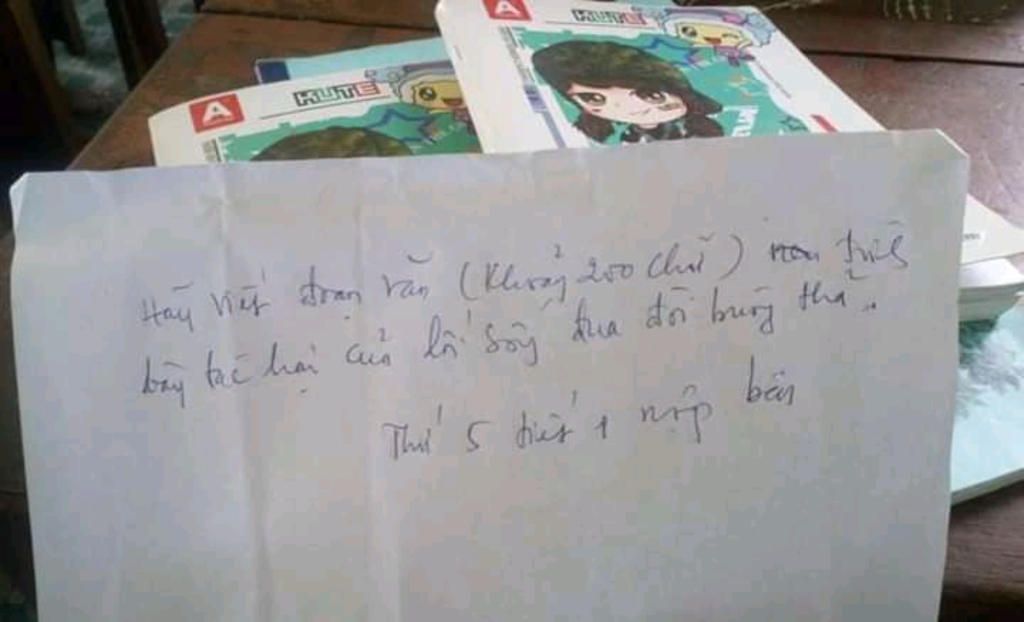 A KUTE
A KUTE
Hãy viết đoạn văn (Khoảng 200 chữ) trình
bày tác hại của lối sống đua đòi buông thả..
Thứ 5 tiết 1 nộp bài